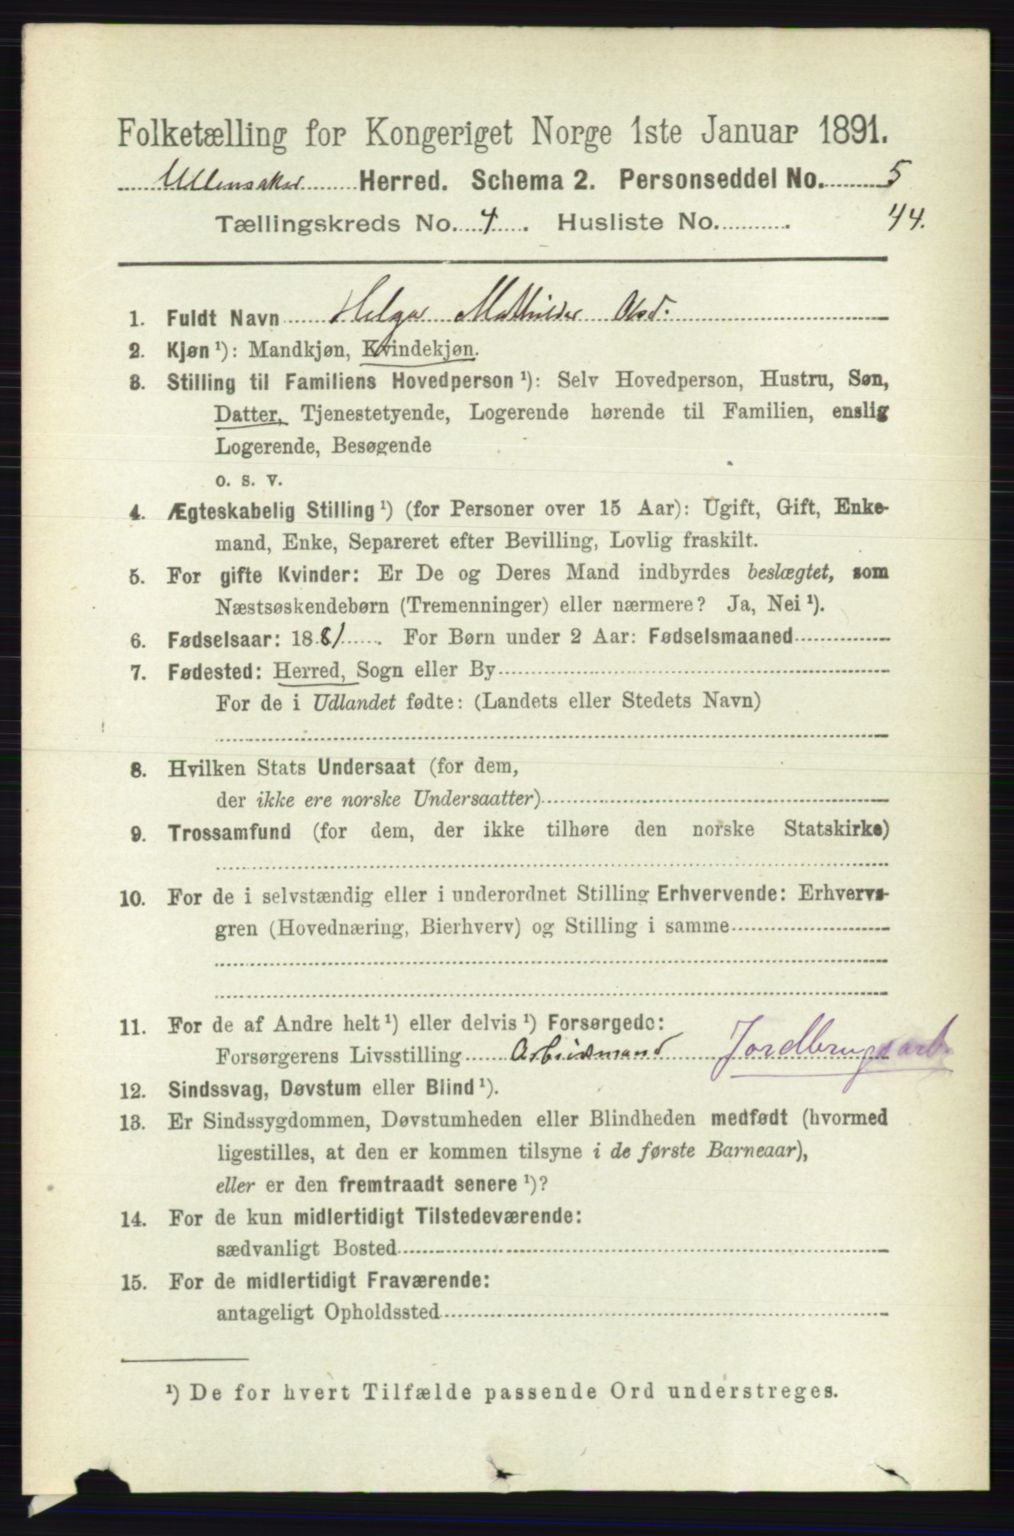 Folketælling for Kongeriget Norge 1ste Januar 1891.
Ullensaker Herred. Schema 2. Personseddel No. 5
Tællingskreds No. 4. Husliste No. 44.
1. Fuldt Navn Helga Mathilde Olsd.
2. Kjøn ¹): Mandkjøn, Kvindekjøn.
3. Stilling til Familiens Hovedperson ¹): Selv Hovedperson, Hustru, Søn,
Datter, Tjenestetyende, Logerende hørende til Familien, enslig
Logerende, Besøgende
o. s. v.
4. Ægteskabelig Stilling ¹) (for Personer over 15 Aar): Ugift, Gift, Enke-
mand, Enke, Separeret efter Bevilling, Lovlig fraskilt.
5. For gifte Kvinder: Er De og Deres Mand indbyrdes beslægtet, som
Næstsøskendebørn (Tremenninger) eller nærmere? Ja, Nei ¹).
6. Fødselsaar: 1881. For Børn under 2 Aar: Fødselsmaaned
7. Fødested: Herred, Sogn eller By
For de i Udlandet fødte: (Landets eller Stedets Navn)
8. Hvilken Stats Undersaat (for dem,
der ikke ere norske Undersaatter)
9. Trossamfund (for dem, der ikke tilhøre den norske Statskirke)
10. For de i selvstændig eller i underordnet Stilling Erhvervende: Erhvervs-
gren (Hovednæring, Bierhverv) og Stilling i samme
11. For de af Andre helt ¹) eller delvis ¹) Forsørgede:
Forsørgerens Livsstilling Arbeidsmand Jordbrugsarb.
12. Sindssvag, Døvstum eller Blind ¹).
13. Er Sindssygdommen, Døvstumheden eller Blindheden medfødt (hvormed
ligestilles, at den er kommen tilsyne i de første Barneaar),
eller er den fremtraadt senere ¹)?
14. For de kun midlertidigt Tilstedeværende:
sædvanligt Bosted
15. For de midlertidigt Fraværende:
antageligt Opholdssted
¹) De for hvert Tilfælde passende Ord understreges.